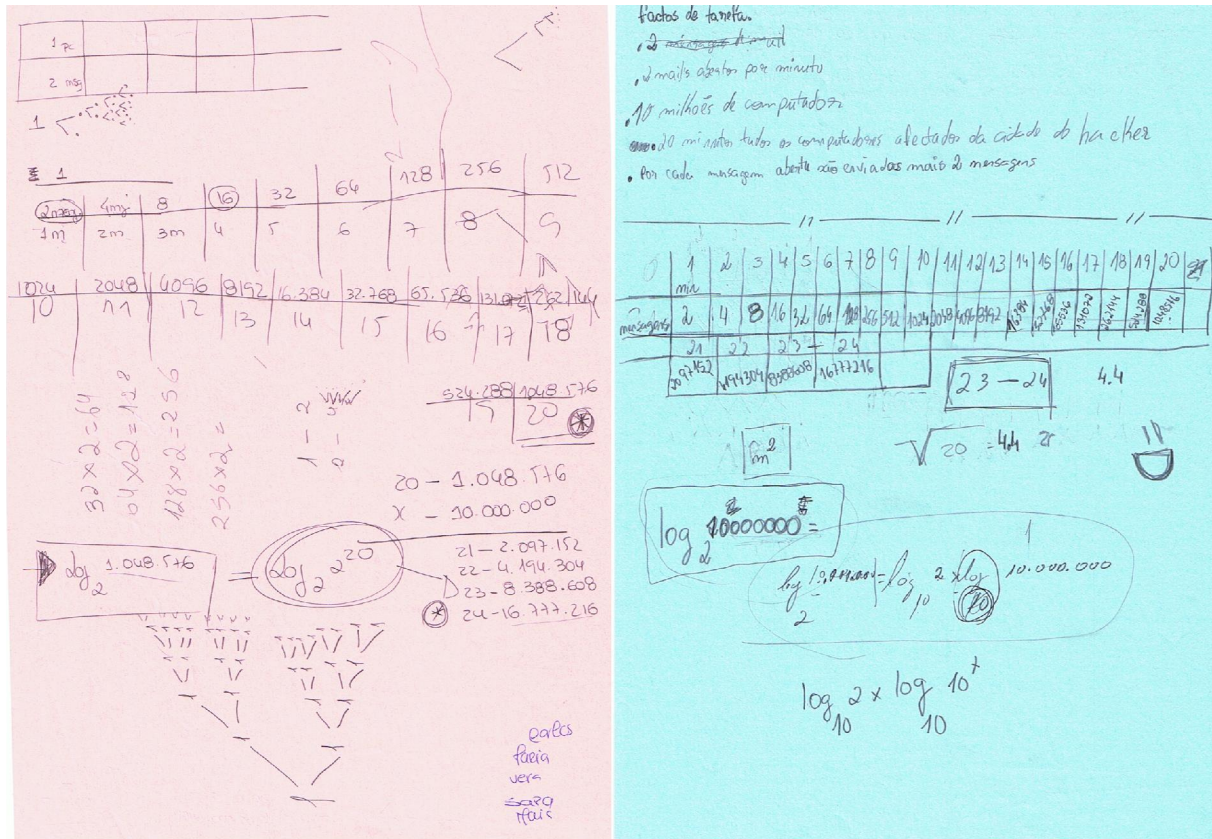 1 pc
2 msg
1
1
2 msg 4 msg 8 16 32 64 128 256 512
1m 2m 3m 4 5 6 7 8 9
1024 2048 4096 8192 16.384 32.768 65.536 262.144
10 11 12 13 14 15 16 17 18
524.288 1048.576
19 20
32x2=64
64x2=128
128x2=256
256x2=
1 — 2
20 — 1.048.576
x — 10.000.000
21 — 2.097.152
22 — 4.194.304
23 — 8.388.608
24 — 16.777.216
log2 1.048.576 = log2 2^20
faria
vera
sara
factos de tarefa.
. 2 mensagens de mail
. 2 mails abertos por minuto
. 10 milhões de computador
20 minutos tudos os computadores afectados da cidade do hacker
. Por cada mensagem aberta são enviadas mais 2 mensagens
— // — // — // —
1 min 2 3 4 5 6 7 8 9 10 11 12 13 14 15 16 17 18 19 20
mensagens 2 4 8 16 32 64 128 256 512 1024 2048 4096 8192 16384 32768 65536 131072 262144 524288 1048576
21 22 23 — 24
2097152 4194304 8388608 16777216
23 — 24 4.4
m²
√20 = 4.4
log2 10000000 =
log2 = log10 2 x log10 10.000.000
1
log10 2 x log10 10^7